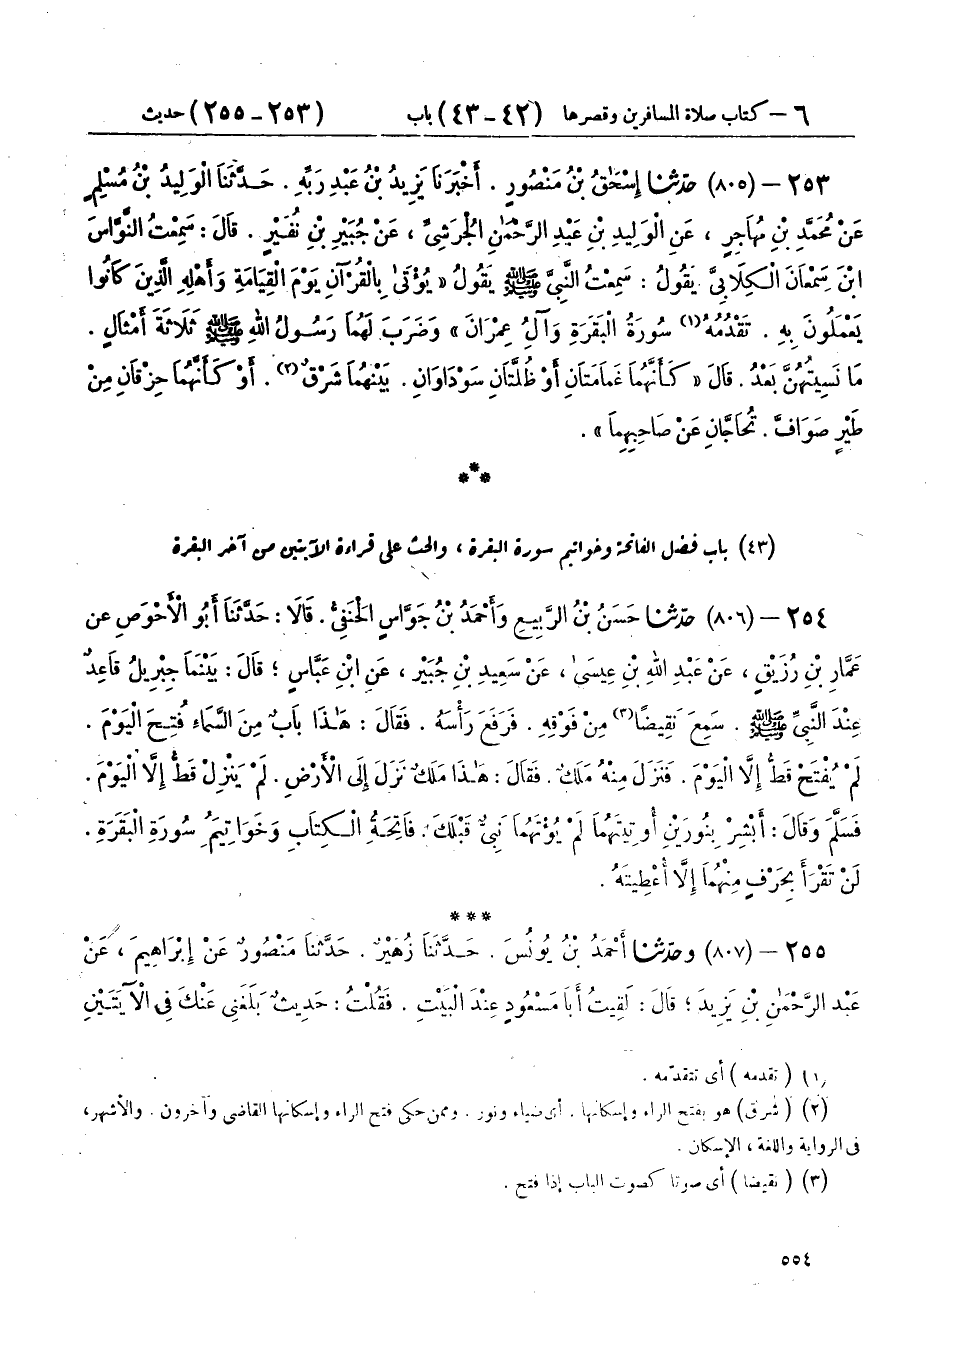 ٦ – كتاب صلاة المسافرين وقصرها (٤٢ – ٤٣) باب (٢٥٣ – ٢٥٥) حديث
٢٥٣ – (٨٠٥) حدّثنا إِسْحَٰقُ بْنُ مَنْصُورٍ . أَخْبَرَنَا يَزِيدُ بْنُ عَبْدِ رَبِّهِ . حَدَّثَنَا الْوَلِيدُ بْنُ مُسْلِمٍ
عَنْ مُحَمَّدِ بْنِ مُهَاجِرٍ ، عَنِ الْوَلِيدِ بْنِ عَبْدِ الرَّحْمَٰنِ الْجُرَشِيِّ ، عَنْ جُبَيْرِ بْنِ نُفَيْرٍ . قَالَ : سَمِعْتُ النَّوَّاسَ
ابْنَ سَمْعَانَ الْكِلَابِيَّ يَقُولُ : سَمِعْتُ النَّبِيَّ ﷺ يَقُولُ « يُؤْتَىٰ بِالْقُرْآنِ يَوْمَ الْقِيَامَةِ وَأَهْلِهِ الَّذِينَ كَانُوا
يَعْمَلُونَ بِهِ . تَقْدُمُهُ(١) سُورَةُ الْبَقَرَةِ وَآلُ عِمْرَانَ » وَضَرَبَ لَهُمَا رَسُولُ اللهِ ﷺ ثَلَاثَةَ أَمْثَالٍ .
مَا نَسِيتُهُنَّ بَعْدُ . قَالَ « كَأَنَّهُمَا غَمَامَتَانِ أَوْ ظُلَّتَانِ سَوْدَاوَانِ . بَيْنَهُمَا شَرْقٌ(٢) . أَوْ كَأَنَّهُمَا حِزْقَانِ مِنْ
طَيْرٍ صَوَافَّ . تُحَاجَّانِ عَنْ صَاحِبِهِمَا » .
***
(٤٣) باب فضل الفاتحة وخواتيم سورة البقرة ، والحث على قراءة الآيتين من آخر البقرة
٢٥٤ – (٨٠٦) حدّثنا حَسَنُ بْنُ الرَّبِيعِ وَأَحْمَدُ بْنُ جَوَّاسٍ الْحَنَفِيُّ . قَالَا : حَدَّثَنَا أَبُو الْأَحْوَصِ عَن
عَمَّارِ بْنِ رُزَيْقٍ ، عَنْ عَبْدِ اللهِ بْنِ عِيسَىٰ ، عَنْ سَعِيدِ بْنِ جُبَيْرٍ ، عَنِ ابْنِ عَبَّاسٍ ؛ قَالَ : بَيْنَمَا جِبْرِيلُ قَاعِدٌ
عِنْدَ النَّبِيِّ ﷺ . سَمِعَ نَقِيضًا(٣) مِنْ فَوْقِهِ . فَرَفَعَ رَأْسَهُ . فَقَالَ : هَٰذَا بَابٌ مِنَ السَّمَاءِ فُتِحَ الْيَوْمَ .
لَمْ يُفْتَحْ قَطُّ إِلَّا الْيَوْمَ . فَنَزَلَ مِنْهُ مَلَكٌ . فَقَالَ : هَٰذَا مَلَكٌ نَزَلَ إِلَى الْأَرْضِ . لَمْ يَنْزِلْ قَطُّ إِلَّا الْيَوْمَ .
فَسَلَّمَ وَقَالَ : أَبْشِرْ بِنُورَيْنِ أُوتِيتَهُمَا لَمْ يُؤْتَهُمَا نَبِيٌّ قَبْلَكَ : فَاتِحَةُ الْكِتَابِ وَخَوَاتِيمُ سُورَةِ الْبَقَرَةِ .
لَنْ تَقْرَأَ بِحَرْفٍ مِنْهُمَا إِلَّا أُعْطِيتَهُ .
***
٢٥٥ – (٨٠٧) وحدّثنا أَحْمَدُ بْنُ يُونُسَ . حَدَّثَنَا زُهَيْرٌ . حَدَّثَنَا مَنْصُورٌ عَنْ إِبْرَاهِيمَ ، عَنْ
عَبْدِ الرَّحْمَٰنِ بْنِ يَزِيدَ ؛ قَالَ : لَقِيتُ أَبَا مَسْعُودٍ عِنْدَ الْبَيْتِ . فَقُلْتُ : حَدِيثٌ بَلَغَنِي عَنْكَ فِي الْآيَتَيْنِ
(١) ( تقدمه ) أى تتقدّمه .
(٢) ( شرق ) هو بفتح الراء وإسكانها . أى ضياء ونور . وممن حكى فتح الراء وإسكانها القاضى وآخرون . والأشهر ،
فى الرواية واللغة ، الإسكان .
(٣) ( نقيضا ) أى صوتا كصوت الباب إذا فتح .
٥٥٤